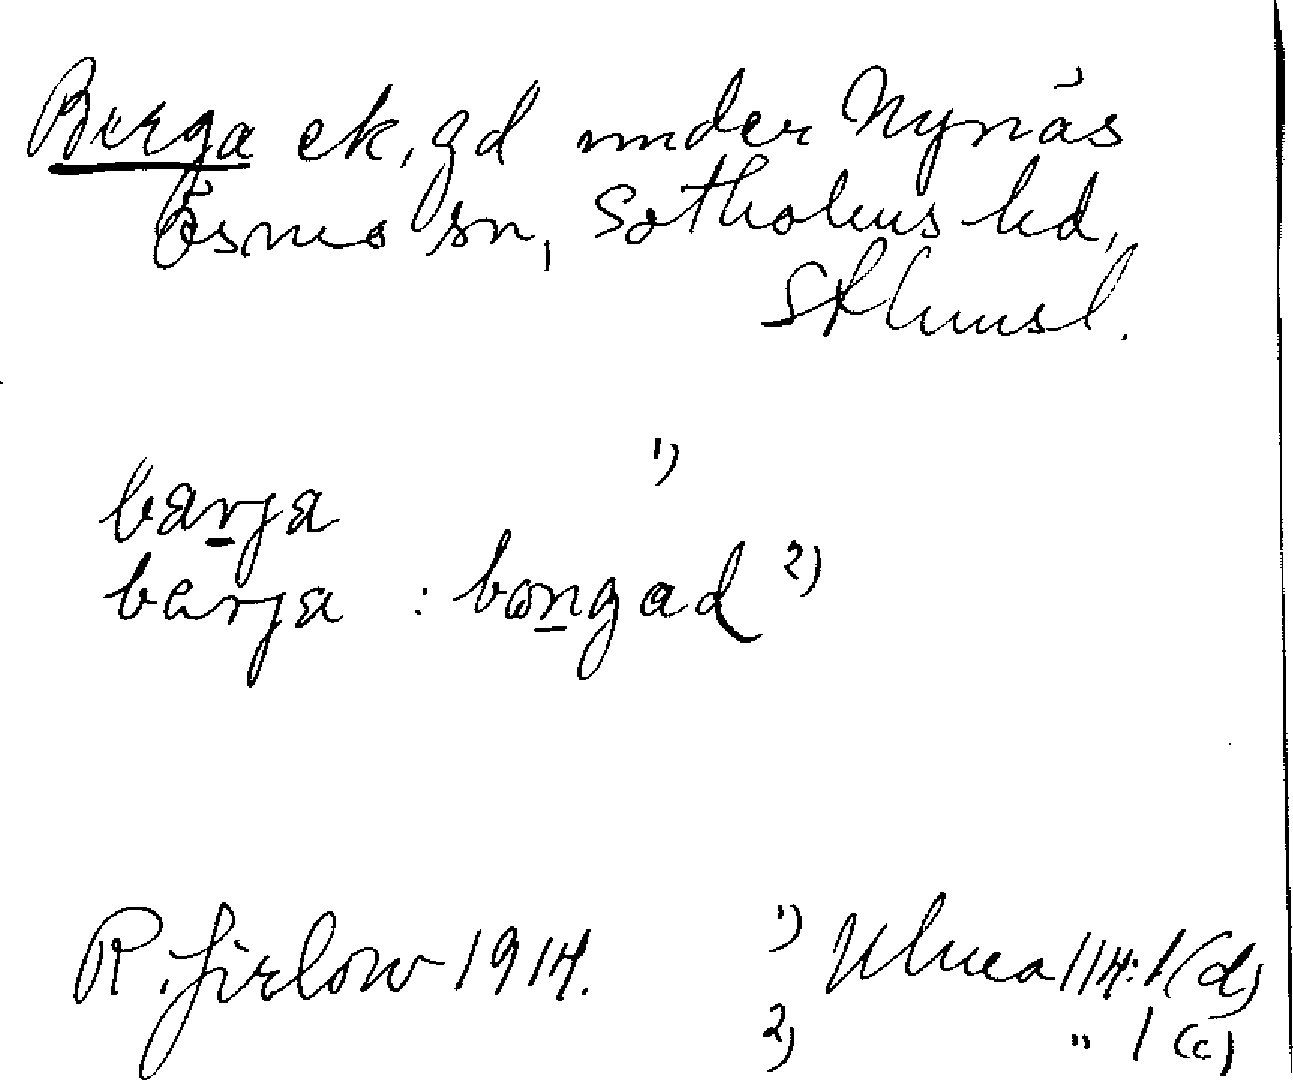 Berga ek, gd under Nynäs
Ösmo sn, Sotholms hd,
Sthmsl.
1)
barja
barja : bongad 2)
R. Jirlow 1914. 1) 114:1 (d)
2) " 1 (c)